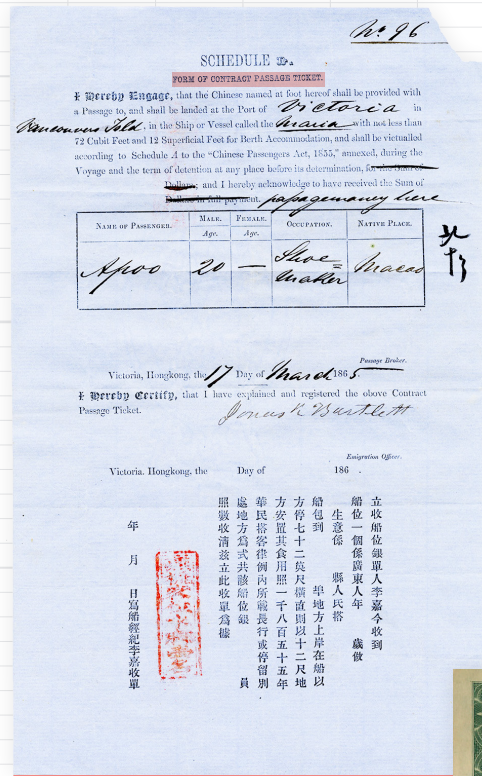 No. 96
SCHEDULE D.
FORM OF CONTRACT PASSAGE TICKET.
I Hereby Engage, that the Chinese named at foot hereof shall be provided with
a Passage to, and shall be landed at the Port of Victoria in
Vancouvers Isld. in the Ship or Vessel called the Maria with not less than
72 Cubit Feet and 12 Superficial Feet for Berth Accommodation, and shall be victualled
according to Schedule A to the "Chinese Passengers Act, 1855," annexed, during the
Voyage and the term of detention at any place before its determination, for the Sum of
Dollars; and I hereby acknowledge to have received the Sum of
Dollars in full payment. passagemoney here
NAME OF PASSENGER. MALE. Age. FEMALE. Age. OCCUPATION. NATIVE PLACE.
Apoo 20 — Shoe=maker Macao
Passage Broker.
Victoria, Hongkong, the 17 Day of March 1865.
I Hereby Certify, that I have explained and registered the above Contract
Passage Ticket.
Jonas K Bartlett
Emigration Officer.
Victoria. Hongkong, the Day of 186 .
立收船位銀單人李嘉今收到
船位一個係廣東人年 歲做
生意係 縣人氏搭
船包到 埠地方上岸在船以
方停七十二英尺橫直則以十二尺地
方安置其食用照一千八百五十五年
華民搭客律例內所載長行或停留別
處地方為式共該船位銀 員
照數收清茲立此收單為據
年 月 日寫船經紀李嘉收單